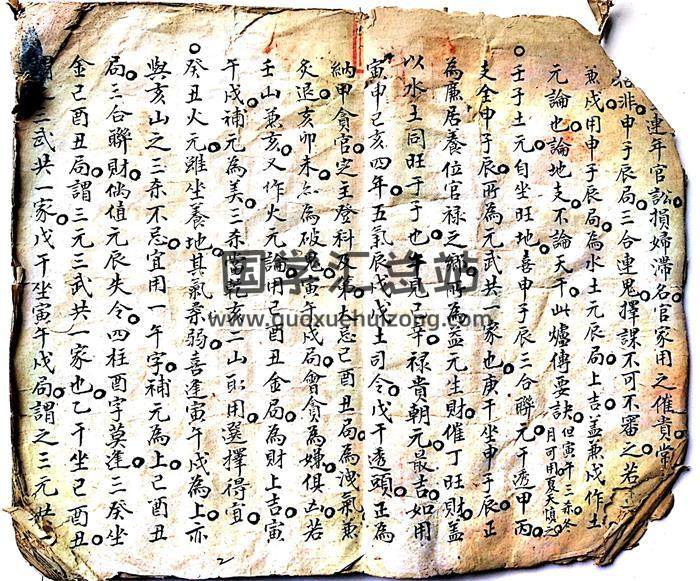 連年官訟損婦滯名官家用之催貴常
非申子辰局三合連鬼擇課不可不審之若
兼戌用申子辰局為水土元辰局上吉盖兼戌作土
元論也論地支不論天干此爐傳要訣但寅午三赤冬
月可用夏天慎之
壬子土元自坐旺地喜申子辰三合聯元干透甲丙
支全申子辰所為元武共一家也庚干坐申子辰正
為廉居養位官祿之為益元生財催丁旺財盖
以水土同旺于子也午見己辛祿貴朝元最吉如用
寅申己亥四年五氣辰戌土司令戊干透頭正為
納甲貪官定主登科及第大忌己酉丑局為洩氣兼
炙退亥卯未為破鬼寅午戌局會貪為嫌俱凶若
壬山兼亥又作火元論用己酉丑金局為財上吉寅
午戌補元為美三赤當乾亥二山取用選擇得宜
癸丑火元雖坐養地其氣柔弱喜逢寅午戌為上亦
與亥山之三赤不忌宜用一午字補元為上己酉丑
局三合聯財倘值元辰失令四柱酉字莫逢三癸坐
金己酉丑局謂三元三武共一家也乙干坐己酉丑
謂三武共一家戊干坐寅午戌局謂之三元共一
国学汇总站
www.guoxuehuizong.com
2